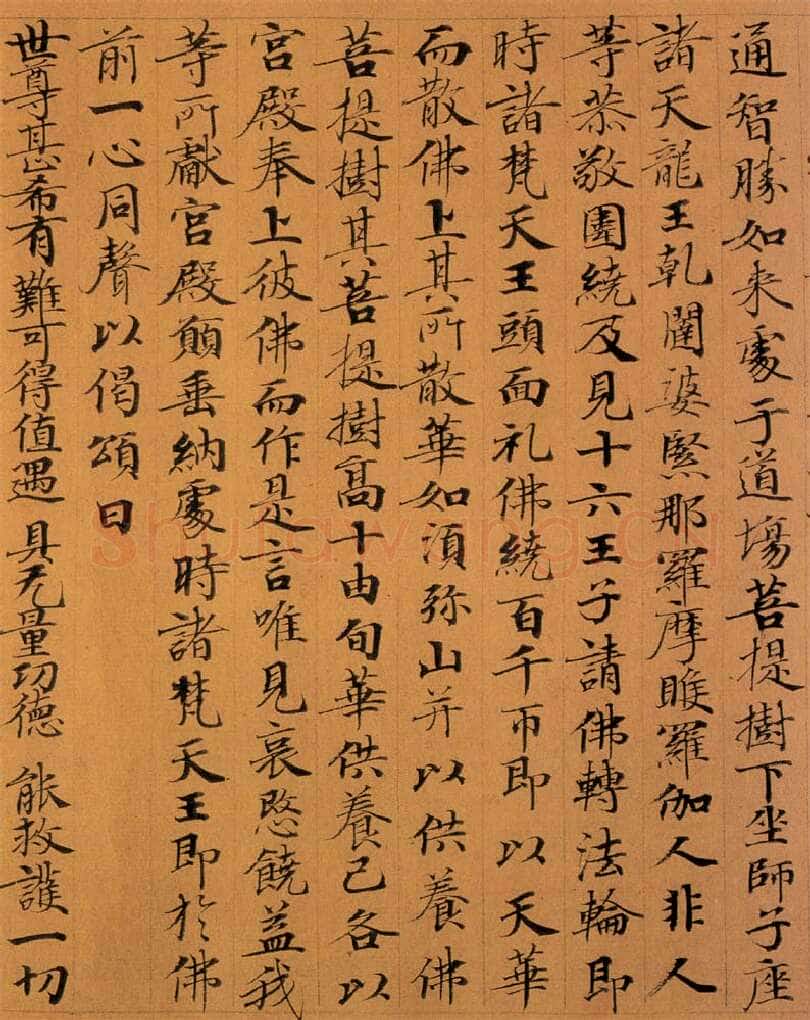 通智勝如来處于道場菩提樹下坐師子座
諸天龍王乹闥婆緊那羅摩睺羅伽人非人
等恭敬圍繞及見十六王子請佛轉法輪即
時諸梵天王頭面礼佛繞百千帀即以天華
而散佛上其所散華如湏弥山并以供養佛
菩提樹其菩提樹髙十由旬華供養已各以
宮殿奉上彼佛而作是言唯見哀愍饒益我
等所獻宮殿願垂納處時諸梵天王即於佛
前一心同聲以偈頌曰
世尊甚希有難可得值遇 具无量功德 能救護一切